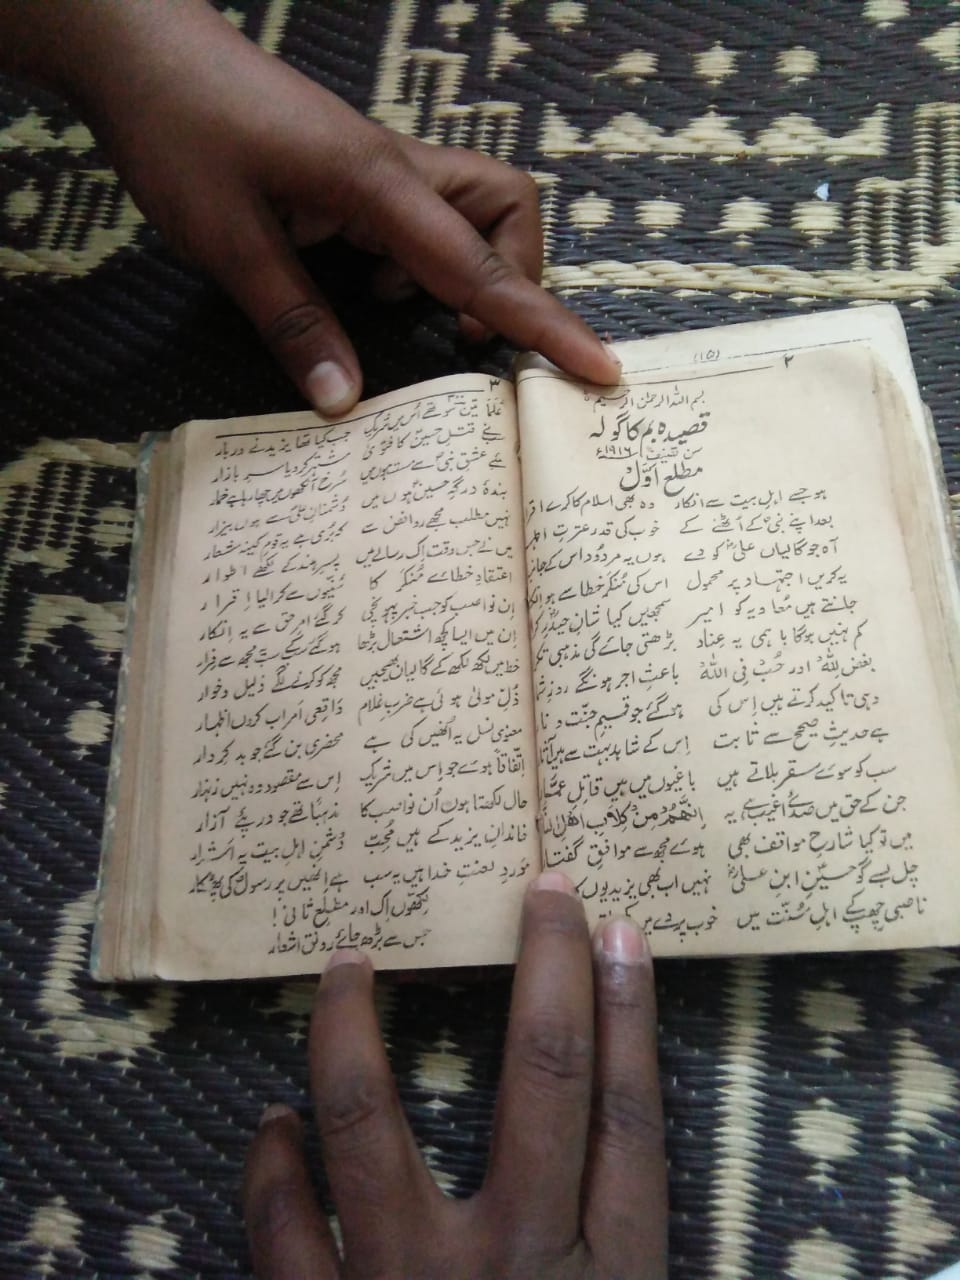 ۲
(۱۵)
بسم اللہ الرحمٰن الرحیم
قصیدہ بم کا گولہ
سن تصنیف ۱۹۱۶ء
مطلع اوّل
ہو جسے اہلِ بیت سے انکار وہ بھی اسلام کا کرے
بعد اپنے نبیؐ کے اُٹھنے کے خوب کی قدر عترتِ
آہ جو گالیاں علیؓ کو دے ہوں یہ مردُود اس کے
یہ کریں اجتہاد پر محمول اس کی مُنکر خطا سے ہو
جانتے ہیں مُعاویہ کو امیر سمجھیں کیا شانِ حیدرِ
کم نہیں ہوگا باہمی یہ عِناد بڑھتی جائے گی مذہبی
بغض لِلّٰہ اور حُبّ فی اللہ باعثِ اجر ہونگے روزِ
وہی تاکید کرتے ہیں اِس کی ہوگئے جو قسیمِ جنّت و نا
ہے حدیثِ صحیح سے ثابت اِس کے شاہد بہت سے ہیں
سب کو سوئے سقر بلاتے ہیں باغیوں میں ہیں قاتلِ عمّار
جن کے حق میں صدائے غیب ہے یہ اِنَّھُمْ مِنْ کِلَابِ اَھْلِ النَّا
میں تو کیا شارحِ مواقف بھی ہوئے مجھ سے موافقِ گفتا
چل بسے گو حسینؑ ابنِ علیؑ نہیں اب بھی یزیدیوں
ناصبی چھپ کے اہلِ سُنّت میں خوب پردے میں
۳
عُلَما تین سو تھے اُس میں شریک جب کیا تھا یزید نے دربار
نے قتلِ حسینؑ کا فتویٰ مشتہر کر دیا سرِ بازار
ئے عشقِ نبیؐ سے مست ہوں میں سُرخ آنکھوں میں چھا رہا ہے خمار
بندۂ درگہِ حسینؑ ہوں میں دُشمنانِ علیؑ سے ہوں بیزار
نہیں مطلب مجھے روافض سے کو بُری ہے یہ قوم کینہ شعار
میں نے جس وقت اِک رسالے میں پسرِ ہند کے لکھے اطوار
اعتقادِ خطائے مُنکَر کا سُنّیوں سے کرا لیا اِقرار
اِن نواصب کو جب خبر پہونچی کر گئے امرِ حق سے یہ اِنکار
اِن میں ایسا کچھ اشتعال بڑھا ہوگئے سب کے سب مجھ سے فرار
خط میں لکھ لکھ کے گالیاں بھیجیں مجھ کو کرنے لگے ذلیل و خوار
ذُلِّ مولیٰ ہوئی ہے ضربِ غلام واقعی اَمراب کروں اظہار
معنوی نسل یہ اُنھیں کی ہے محضری بن گئے جو بد کردار
اِتّفاقاً ہوئے جو اِس میں شریک اِس سے مقصود وہ نہیں زنہار
حال لکھتا ہوں اُن نواصب کا مذہباً تھے جو درپئے آزار
خاندانِ یزید کے ہیں مُحِبّ دُشمنِ اہلِ بیت یہ اَشرار
مَوردِ لعنتِ خدا ہیں یہ سب ہے اِنھیں پر رسولؐ کی پھٹکار
لِکھّوں اِک اور مطلعِ ثانی!
جس سے بڑھ جائے رونقِ اشعار